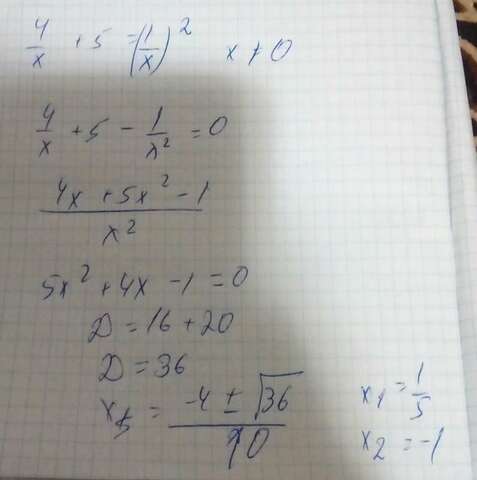 4/x + 5 = (1/x)² x ≠ 0
4/x + 5 - 1/x² = 0
4x + 5x² - 1 / x²
5x² + 4x - 1 = 0
D = 16 + 20
D = 36
x = -4 ± √36 / 10
x₁ = 1/5
x₂ = -1